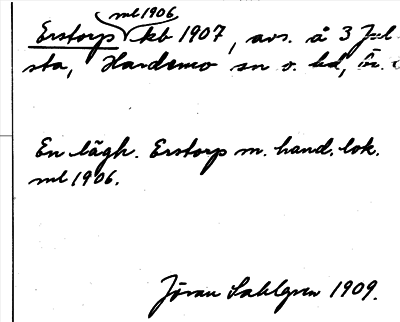 ml 1906
Erstorp kb 1907, avs. å 3 Jul-
sta, Hardemo sn o. hd, Ör.
En lägh. Erstorp m. hand. lok.
ml 1906.
Jöran Sahlgren 1909.